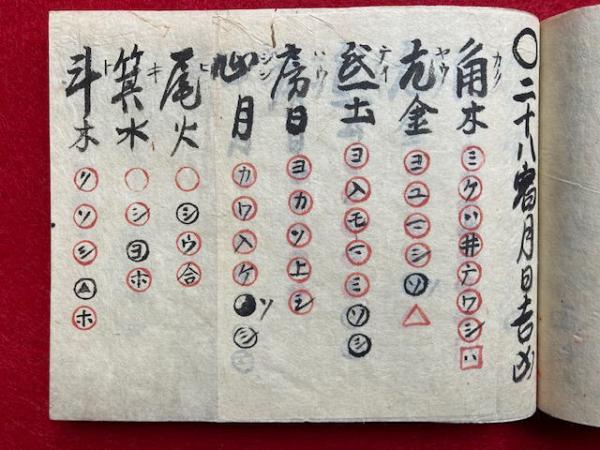 〇二十八宿月日吉凶
角木 カク ミケツ井テワシハ
亢金 ヤウ ヨユニシソ△
氐土 テイ ヨ入モニミソシ
房日 ハウ ヨカソ上シ
心月 シン カワ入ケソシ
尾火 ヒ 〇シウ合
箕水 キ 〇シヨホ
斗木 ト クソシ△ホ